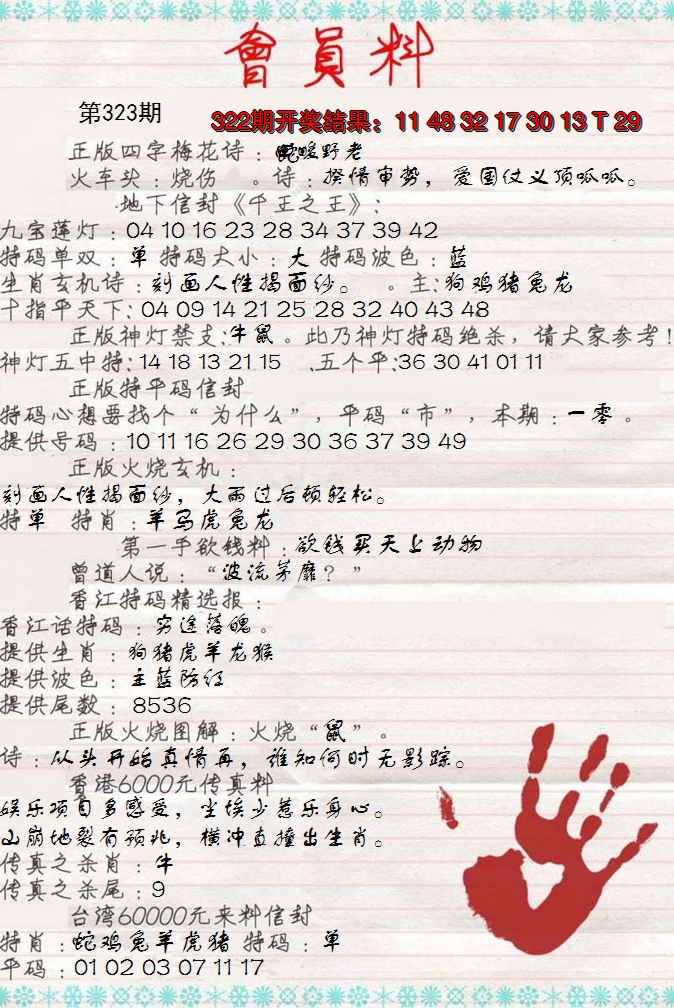 會員料
第323期
322期开奖结果：11 48 32 17 30 13 T 29
正版四字梅花诗：蛇暖野老
火车头：烧伤 。诗：揆情审势，爱国仗义顶呱呱。
地下信封《千王之王》：
九宝莲灯：04 10 16 23 28 34 37 39 42
特码单双：单 特码大小：大 特码波色：蓝
生肖玄机诗：刻画人性揭面纱。 。主：狗鸡猪兔龙
十指平天下：04 09 14 21 25 28 32 40 43 48
正版神灯禁支：牛鼠。此乃神灯特码绝杀，请大家参考！
神灯五中特：14 18 13 21 15 .五个平：36 30 41 01 11
正版特平码信封
特码心想要找个“为什么”，平码“市”，本期：一零。
提供号码：10 11 16 26 29 30 36 37 39 49
正版火烧玄机：
刻画人性揭面纱，大雨过后顿轻松。
特单 特肖：羊马虎兔龙
第一手欲钱料：欲钱买天上动物
曾道人说：“波流茅靡？”
香江特码精选报：
香江话特码：穷途落魄。
提供生肖：狗猪虎羊龙猴
提供波色：主蓝防红
提供尾数：8536
正版火烧图解：火烧“鼠”。
诗：从头开始真情再，谁知何时无影踪。
香港6000元传真料
娱乐项目多感受，尘埃少惹乐身心。
山崩地裂有预兆，横冲直撞出生肖。
传真之杀肖：牛
传真之杀尾：9
台湾60000元来料信封
特肖：蛇鸡兔羊虎猪 特码：单
平码：01 02 03 07 11 17